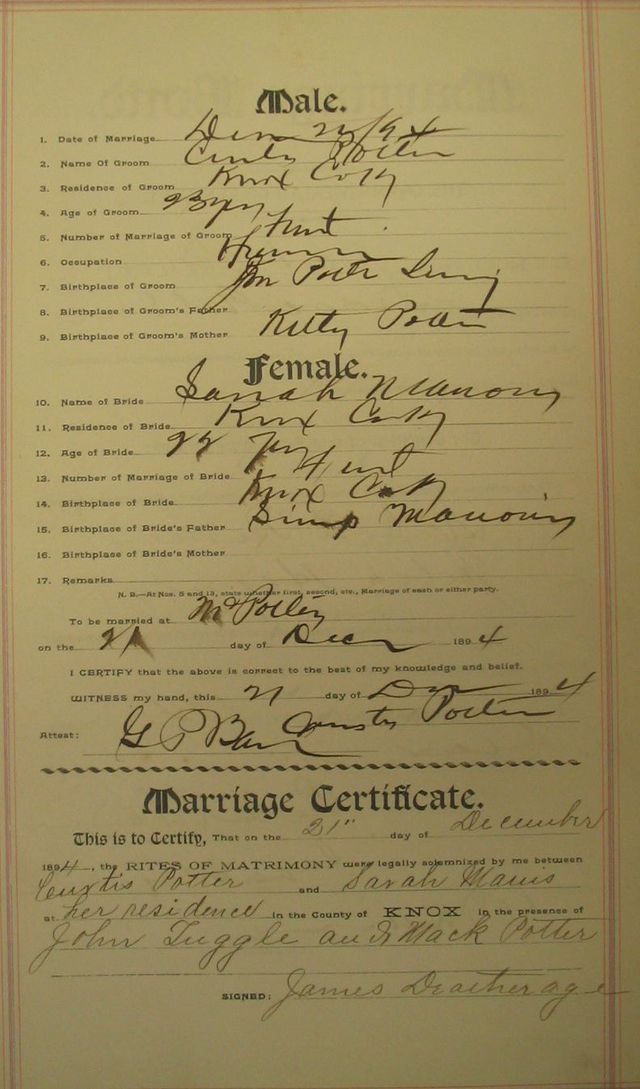 Male.
1. Date of Marriage 21/94
2. Name Of Groom Curtis Potter
3. Residence of Groom Knox Co Ky
4. Age of Groom 23 yrs
5. Number of Marriage of Groom first
6. Occupation
7. Birthplace of Groom
8. Birthplace of Groom's Father
9. Birthplace of Groom's Mother Kitty Potter
Female.
10. Name of Bride Sarah
11. Residence of Bride Knox Co Ky
12. Age of Bride 22 yrs
13. Number of Marriage of Bride first
14. Birthplace of Bride Knox Co Ky
15. Birthplace of Bride's Father Simp
16. Birthplace of Bride's Mother
17. Remarks
N. B.—At Nos. 5 and 13, state whether first, second, etc., Marriage of each or either party.
To be married at
on the 21 day of Dec 1894
I CERTIFY that the above is correct to the best of my knowledge and belief.
WITNESS my hand, this 21 day of 1894
Attest: Curtis Potter
Marriage Certificate.
This is to Certify, That on the 21" day of December
1894, the RITES OF MATRIMONY were legally solemnized by me between
Curtis Potter and Sarah
at her residence in the County of KNOX in the presence of
John Tuggle and Mack Potter
SIGNED: James Deatherage